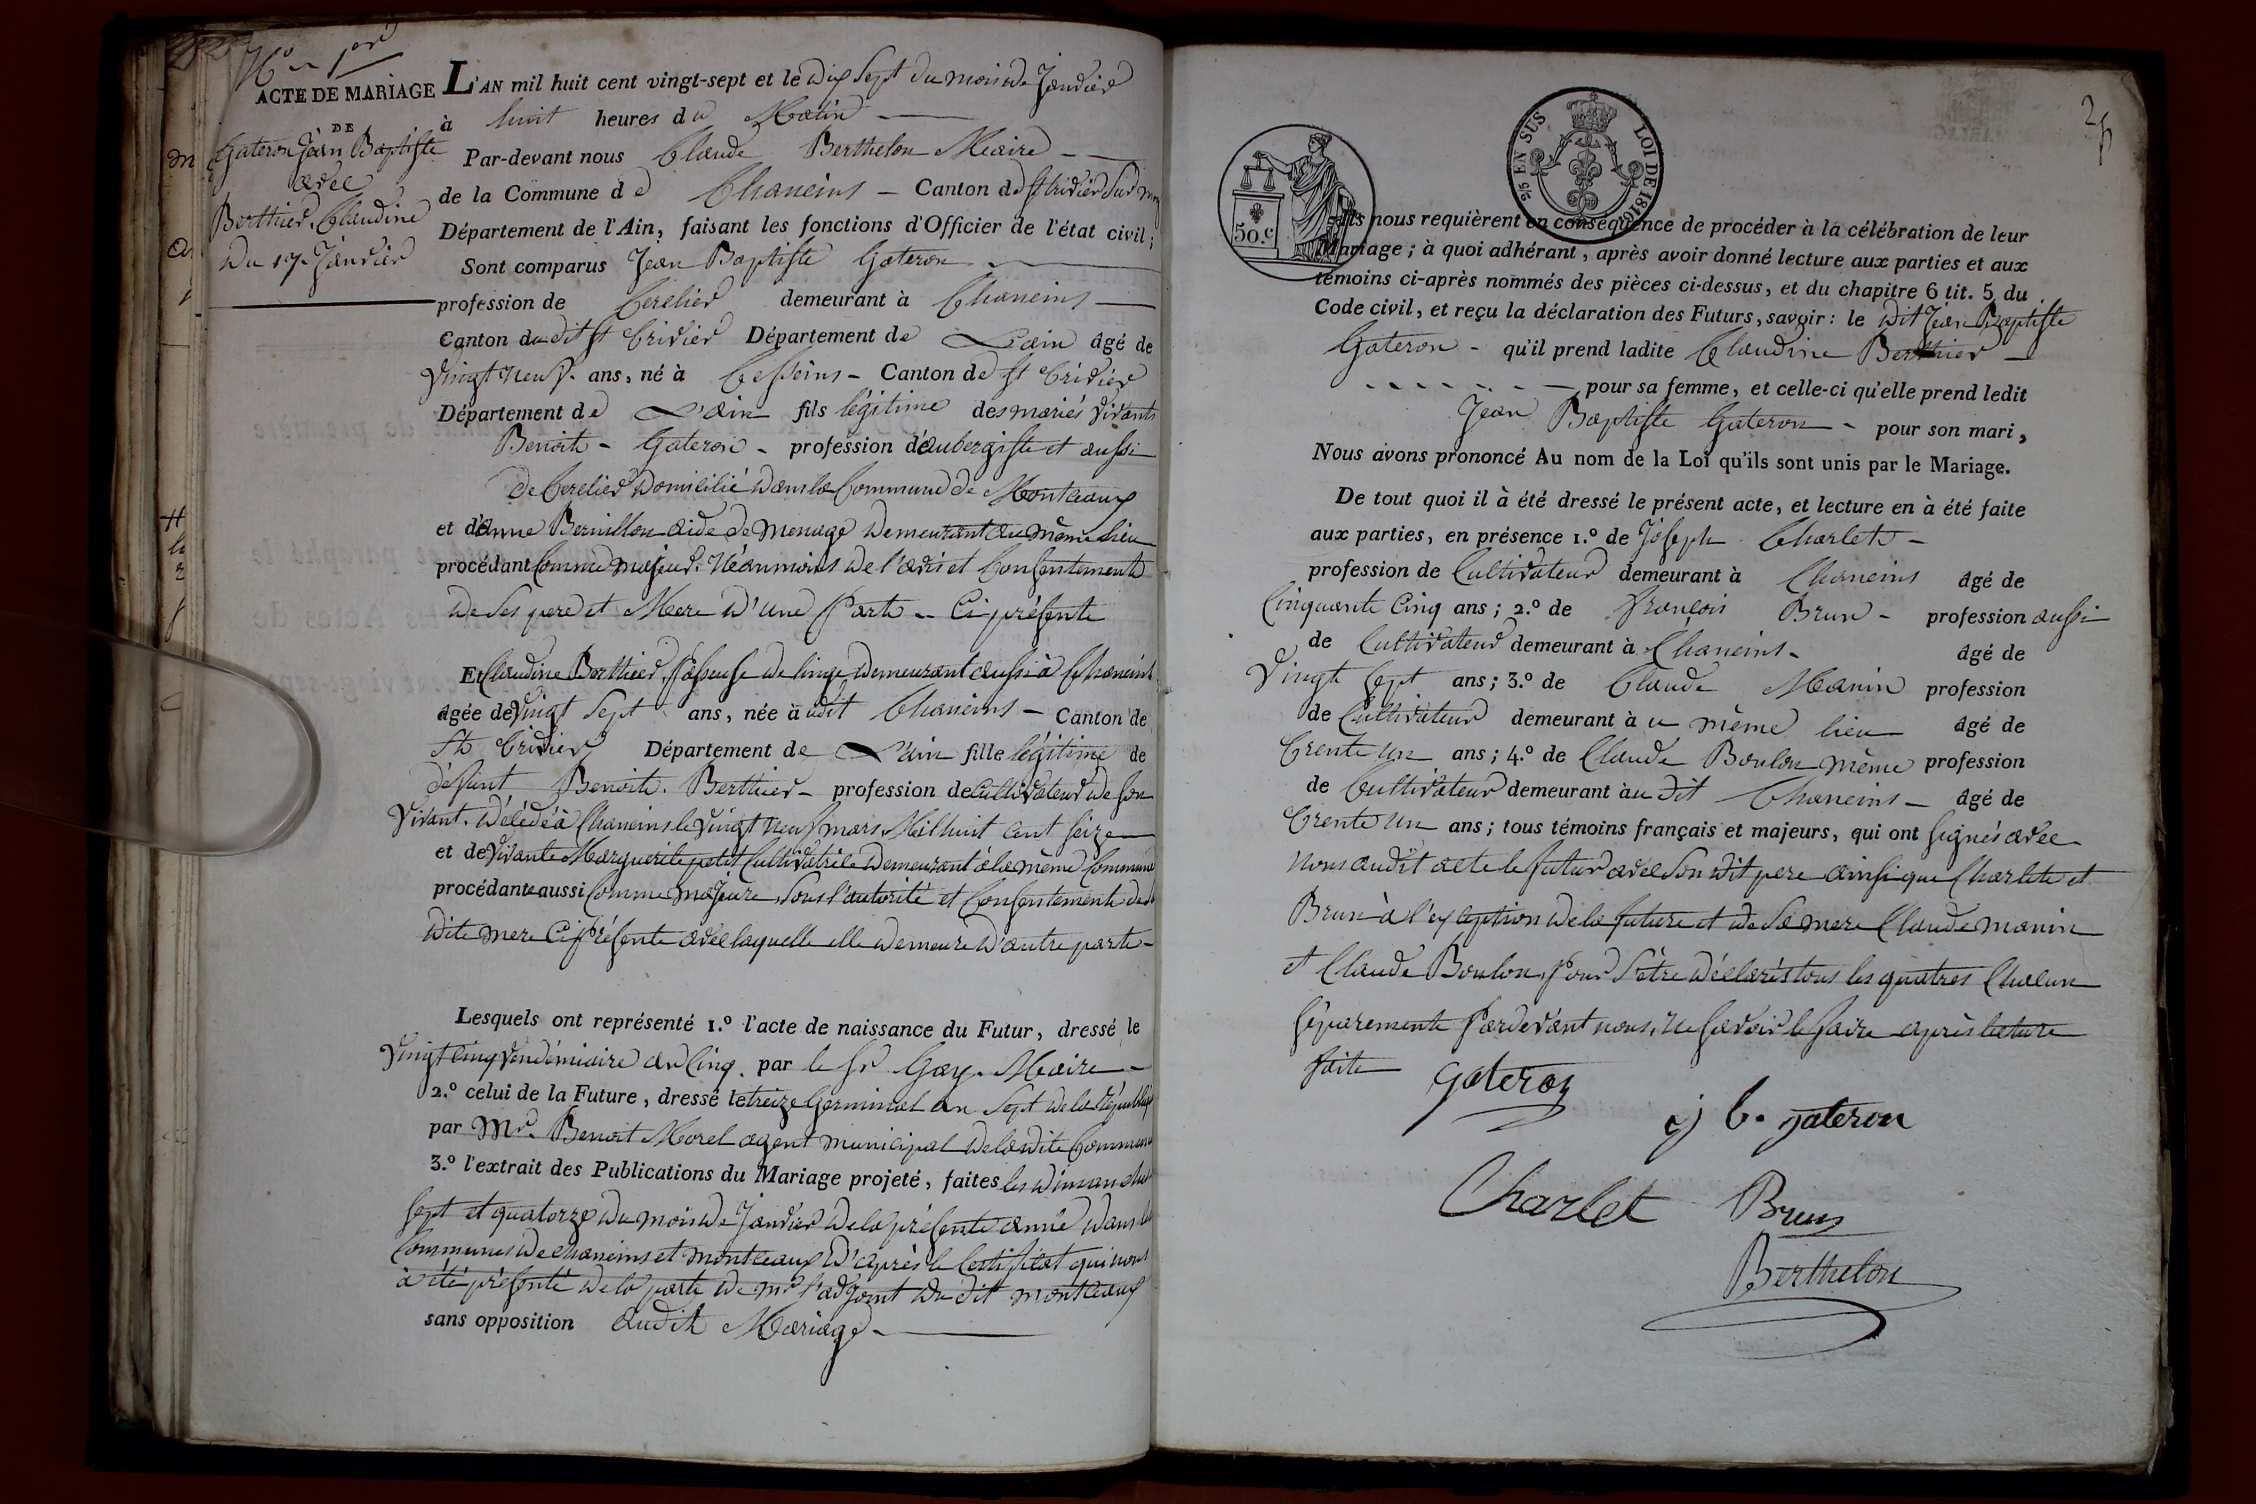 No 1er
ACTE DE MARIAGE
DE
Gateron Jean Baptiste
avec
Berthier Claudine
Du 17 Janvier
L'AN mil huit cent vingt-sept et le dix Sept du mois de Janvier
à huit heures du Matin
Par-devant nous Claude Berthelon Maire
de la Commune de Chaneins Canton de St trivier Sur
Département de l'Ain, faisant les fonctions d'Officier de l'état civil;
Sont comparus Jean Baptiste Gateron
profession de demeurant à Chaneins
Canton du dit St Trivier Département de L'ain âgé de
Vingt neuf ans, né à Cesseins Canton de St Trivier
Département de L'ain fils légitime des mariés vivants
Benoit Gateron profession d'aubergiste et aussi
de domicilié dans la Commune de Montceaux
et d'anne aide de menage demeurant au même lieu
procédant Comme majeur. Néanmoins de l'avis et Consentement
de Ses pere et Mere D'une Part Ci présente
Et Claudine Berthier de linge demeurant aussi à Chaneins
agée de Vingt Sept ans, née à udit Chaneins Canton de
St Trivier Département de L'ain fille légitime de
défunt Benoit Berthier profession de Cultivateur de Son
Vivant. Décédé à Chaneins le Vingt neuf mars Mil huit Cent Seize
et de Vivante Marguerite petit Cultivatrice demeurant à la même Commune
procédante aussi Comme majeure, Sous l'autorité et Consentement de
dite mere Ci présente avec laquelle elle demeure D'autre part
Lesquels ont représenté 1.º l'acte de naissance du Futur, dressé le
Vingt Cinq Vendémiaire an Cinq par le Sr Gay Maire
2.º celui de la Future, dressé le treize Germinal an Sept de la République
par Mr. Benoit Morel agent municipal de la dite Commune
3.º l'extrait des Publications du Mariage projeté, faites les dimanches
Sept et quatorze du mois de Janvier de la présente année dans les
Communes de Chaneins et Montceaux D'après le Certificat qui nous
à été présenté de la part de Mr l'adjoint du dit montceaux
sans opposition audit Mariage
50.c
2/5 EN SUS LOI DE 1816
Ils nous requièrent en conséquence de procéder à la célébration de leur
Mariage; à quoi adhérant, après avoir donné lecture aux parties et aux
témoins ci-après nommés des pièces ci-dessus, et du chapitre 6 tit. 5 du
Code civil, et reçu la déclaration des Futurs, savoir: le dit Jean Baptiste
Gateron - qu'il prend ladite Claudine Berthier
pour sa femme, et celle-ci qu'elle prend ledit
Jean Baptiste Gateron - pour son mari,
Nous avons prononcé Au nom de la Loi qu'ils sont unis par le Mariage.
De tout quoi il à été dressé le présent acte, et lecture en à été faite
aux parties, en présence 1.º de Joseph Charlet
profession de Cultivateur demeurant à Chaneins âgé de
Cinquante Cinq ans; 2.º de françois Brun - profession aussi
de Cultivateur demeurant à Chaneins - âgé de
Vingt Sept ans; 3.º de Claude Manin profession
de Cultivateur demeurant à u même lieu âgé de
Trente un ans; 4.º de Claude Boulon même profession
de Cultivateur demeurant à au dit Chaneins - âgé de
Trente un ans; tous témoins français et majeurs, qui ont Signés avec
nous audit acte le futur avec Son dit pere ainsi que Charlet et
Brun à l'exception de la future et de Sa mere Claude manin
et Claude Boulon, Pour S'être déclarés tous les quatres Chacun
Séparement Pardevant nous, ne Savoir le faire après lecture
faite
gateron
j b. gateron
Charlet Brun
Berthelon